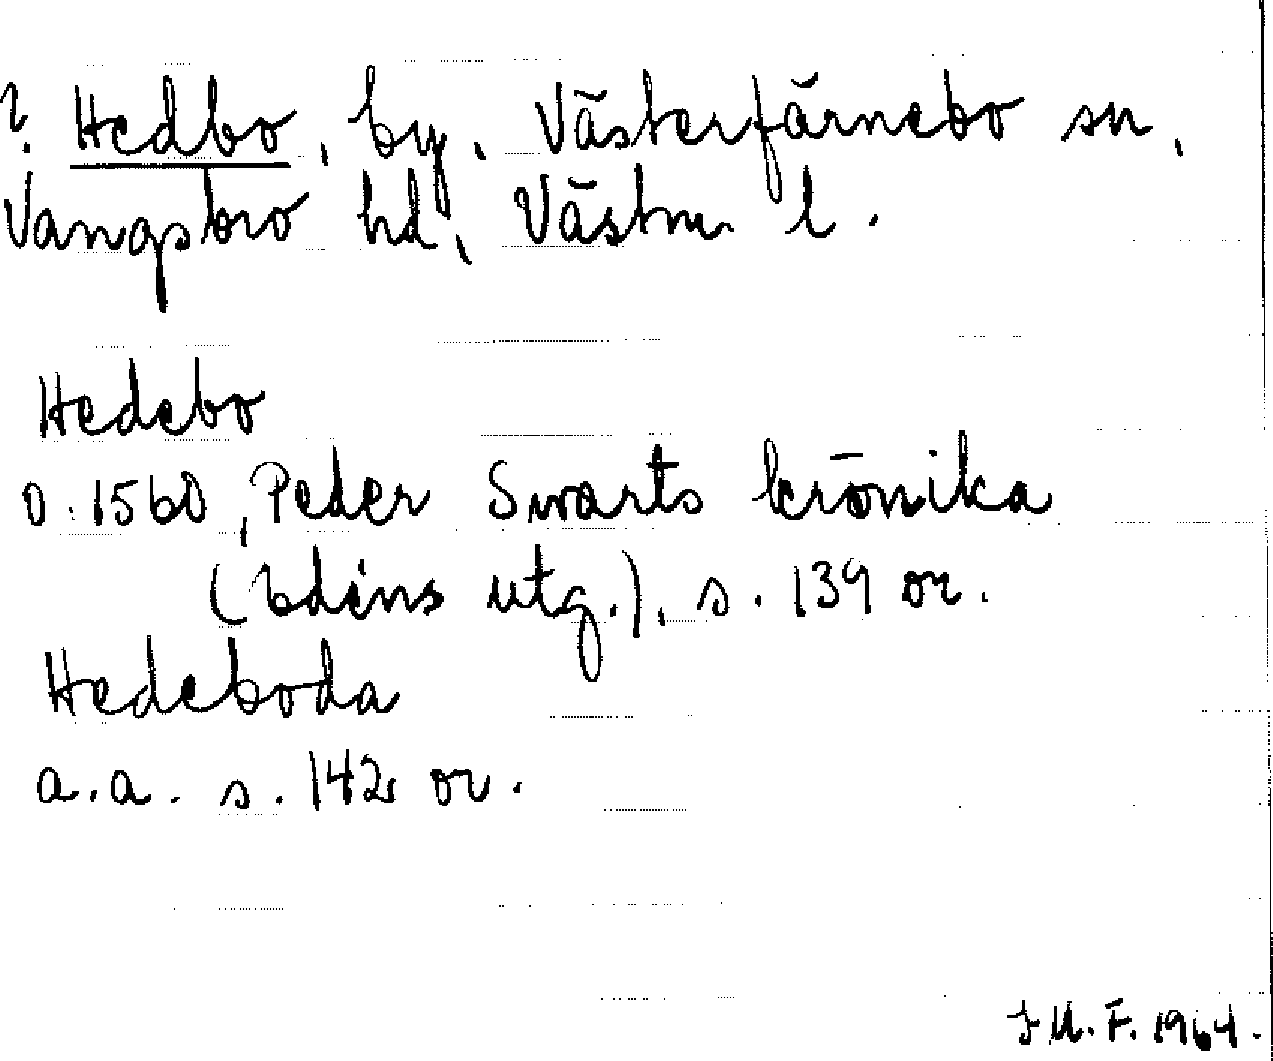 ? Hedbo, by, Västerfärnebo sn,
Vangsbro hd, Västm l.
Hedebo
o. 1560, Peder Swarts krönika
(Edéns utg.), s. 139 or.
Hedeboda
a.a. s. 142 or.
J M. F. 1964.